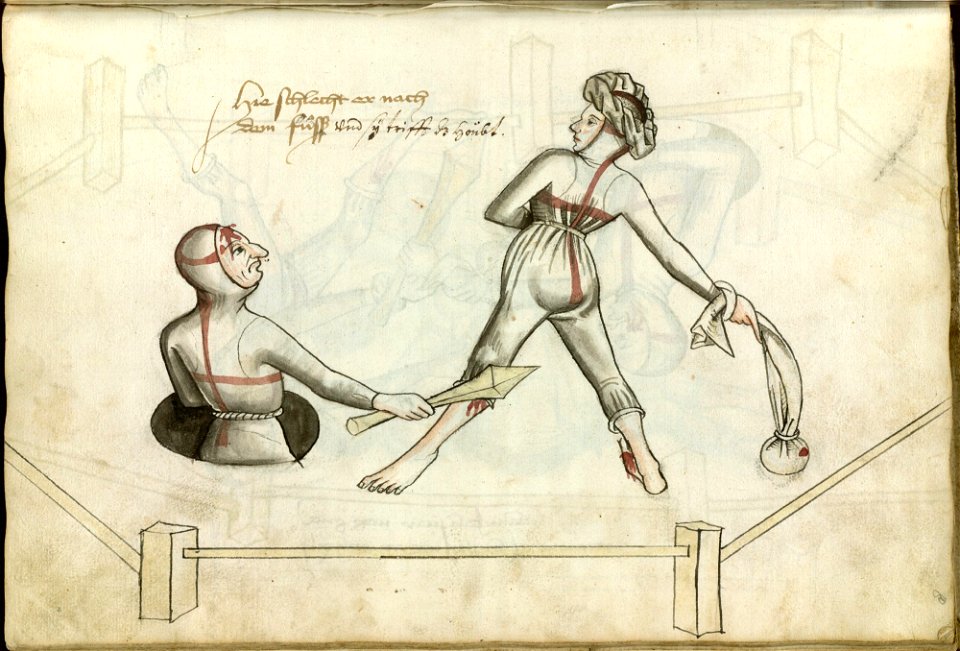 Hie schlecht er nach
dem füss und sy trifft dz höubt.